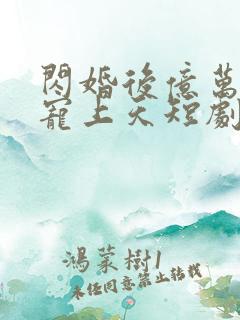 閃婚後億萬
寵上天短劇
鴻蒙樹1
未经同意禁止转载